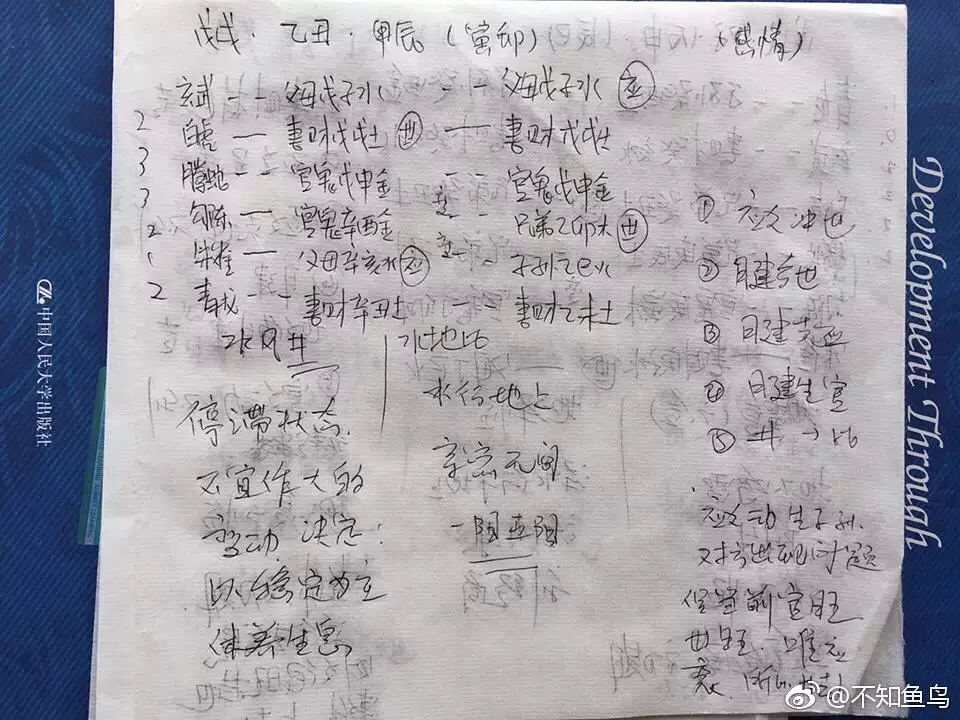 戊戌·乙丑·甲辰(寅卯) (感情)
玄武 - - 父母戊子水 - - 父母戊子水 应
2 白虎 — 妻财戊戌土 世 — 妻财戊戌土
3 腾蛇 - - 官鬼戊申金 - - 官鬼戊申金
3 勾陈 — 官鬼辛酉金 变 - - 兄弟乙卯木 世
2 朱雀 — 父母辛亥水 应 变 - - 子孙乙巳火
1
2 青龙 - - 妻财辛丑土 - - 妻财乙未土
水风井 水地比
停滞状态
不宜作大的
变动 决定:
以稳定为主
休养生息
水行地上
亲密无间
一阳五阴
① 应爻冲世
② 日建合世
③ 日建克应
④ 日建生官
⑤ 井→比
应爻动生子孙.
对方出现问题
但当前官旺
世旺. 唯应
衰.
中国人民大学出版社
Development Through
@不知鱼鸟